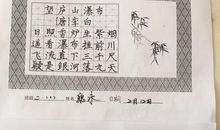 望庐山瀑布
唐 李白
日照香炉生紫烟
遥看瀑布挂前川
飞流直下三千尺
疑是银河落九天
姓名 日期 2月12日